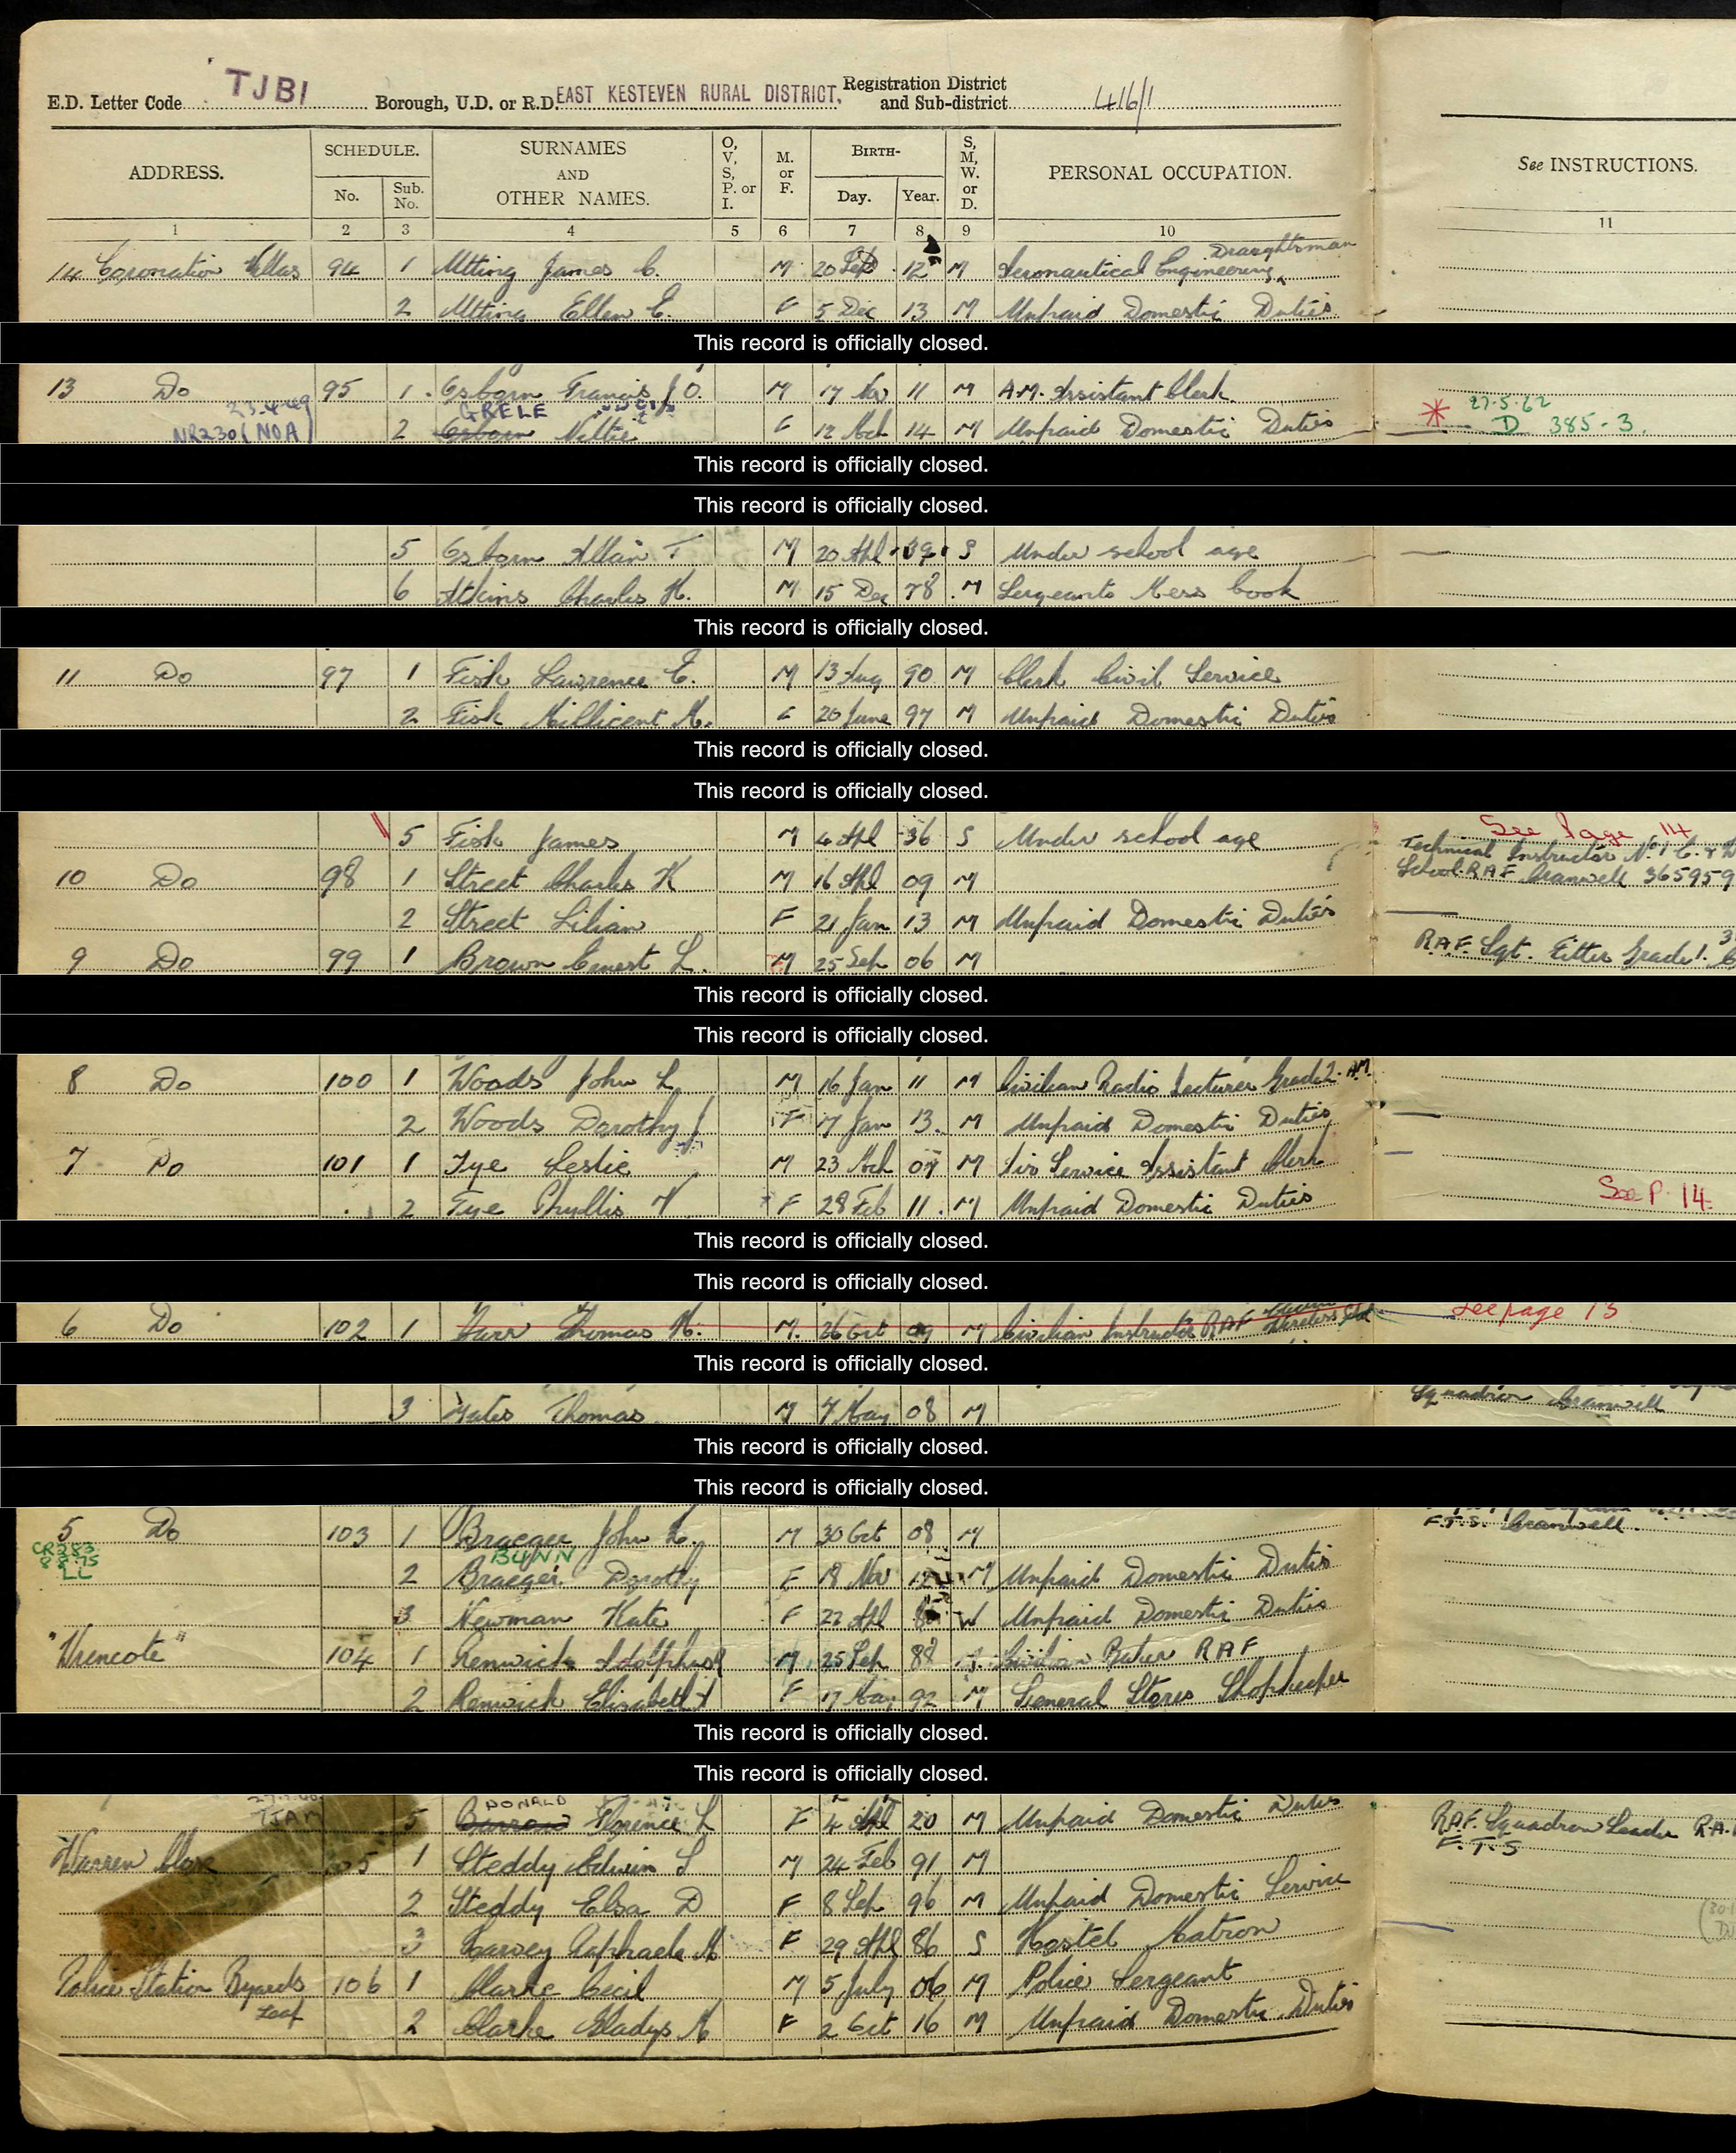 E.D. Letter Code TJBI Borough, U.D. or R.D. EAST KESTEVEN RURAL DISTRICT, Registration District and Sub-district 416/1
ADDRESS. SCHEDULE. No. Sub. No. SURNAMES AND OTHER NAMES. O, V, S, P. or I. M. or F. BIRTH- Day. Year. S, M, W. or D. PERSONAL OCCUPATION. See INSTRUCTIONS.
1 2 3 4 5 6 7 8 9 10 11
14 Coronation Villas 94 1 Utting James C. M 20 Sep 12 M Aeronautical Engineering Draughtsman
2 Utting Ellen E. F 5 Dec 13 M Unpaid Domestic Duties
This record is officially closed.
13 Do 95 1 Osborn Francis J O. M 17 Nov 11 M A.M. Assistant Clerk
23.4.49 GRELE 27.5.62
NR230 (NOA) 2 Osborn Nellie F 12 Mch 14 M Unpaid Domestic Duties D 385-3.
This record is officially closed.
This record is officially closed.
5 Osborn Allan T M 20 Apl 39 S Under school age
6 Atkins Charles H. M 15 Dec 78 M Sergeants Mess Cook
This record is officially closed.
11 Do 97 1 Fisk Lawrence E. M 13 Aug 90 M Clerk Civil Service
2 Fisk Millicent M. F 20 June 97 M Unpaid Domestic Duties
This record is officially closed.
This record is officially closed.
5 Fisk James M 4 Apl 36 S Under school age See Page 14
10 Do 98 1 Street Charles K M 16 Apl 09 M Technical Instructor No 1 School RAF Cranwell 365959
2 Street Lilian F 21 Jan 13 M Unpaid Domestic Duties
9 Do 99 1 Brown Ernest L. M 25 Sep 06 M R.A.F. Sgt. Fitter Grade 1.
This record is officially closed.
This record is officially closed.
8 Do 100 1 Woods John L M 16 Jan 11 M Civilian Radio Lecturer Grade 2. A.M.
2 Woods Dorothy J F 17 Jan 13 M Unpaid Domestic Duties
7 Do 101 1 Tye Leslie M 23 Mch 07 M Air Service Assistant Clerk
2 Tye Phyllis V F 28 Feb 11 M Unpaid Domestic Duties See P. 14
This record is officially closed.
This record is officially closed.
6 Do 102 1 Thomas H. M. 26 Oct 09 M Civilian Instructor RAF Wireless See page 13
This record is officially closed.
3 Yates Thomas M 7 May 08 M Squadron Cranwell
This record is officially closed.
This record is officially closed.
5 Do 103 1 Braeger John L. M 30 Oct 08 M F.T.S. Cranwell.
CR283 8.8.75 LL BUNN
2 Braeger Dorothy F 18 Nov M Unpaid Domestic Duties
3 Newman Kate F 22 Apl W Unpaid Domestic Duties
"Wrencote" 104 1 Renwick Adolphus R M 25 Sep 88 Civilian RAF
2 Renwick Elizabeth A F 17 May 92 M General Stores Shopkeeper
This record is officially closed.
This record is officially closed.
TJAM DONALD
5 Florence L F 4 Apl 20 M Unpaid Domestic Duties
Warren Close 105 1 Steddy Edwin S M 24 Feb 91 M RAF. Squadron Leader F.T.S
2 Steddy Elsa D F 8 Sep 96 M Unpaid Domestic Service
3 Harvey Raphaela M F 29 Apl 86 S Hostel Matron
Police Station Byards Leap 106 1 Clarke Cecil M 5 July 06 M Police Sergeant
2 Clarke Gladys M F 2 Oct 16 M Unpaid Domestic Duties